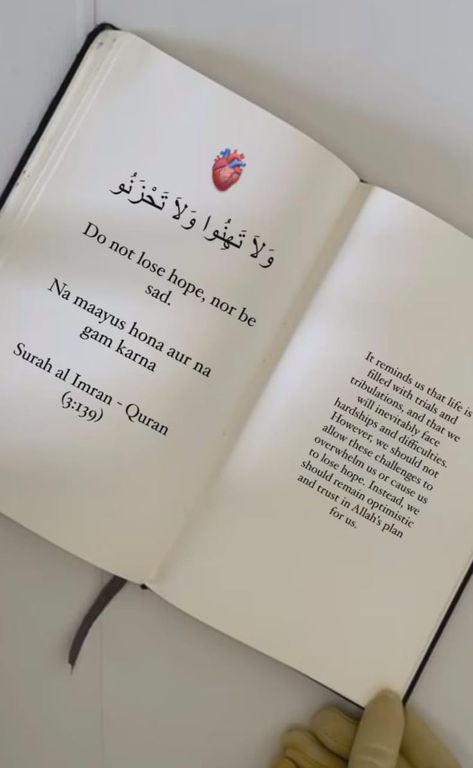 وَلاَ تَهِنُوا وَلاَ تَحْزَنُو
Do not lose hope, nor be
sad.
Na maayus hona aur na
gam karna
Surah al Imran - Quran
(3:139)
It reminds us that life is
filled with trials and
tribulations, and that we
will inevitably face
hardships and difficulties.
However, we should not
allow these challenges to
overwhelm us or cause us
to lose hope. Instead, we
should remain optimistic
and trust in Allah's plan
for us.